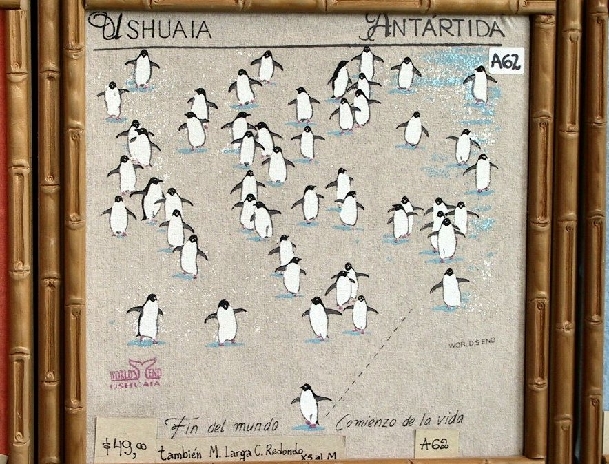 USHUAIA
ANTÁRTIDA
A62
WORLD'S END
WORLD'S END
USHUAIA
Fin del mundo
Comienzo de la vida
$49,00
también M. Larga C. Redondo XS al M
A62